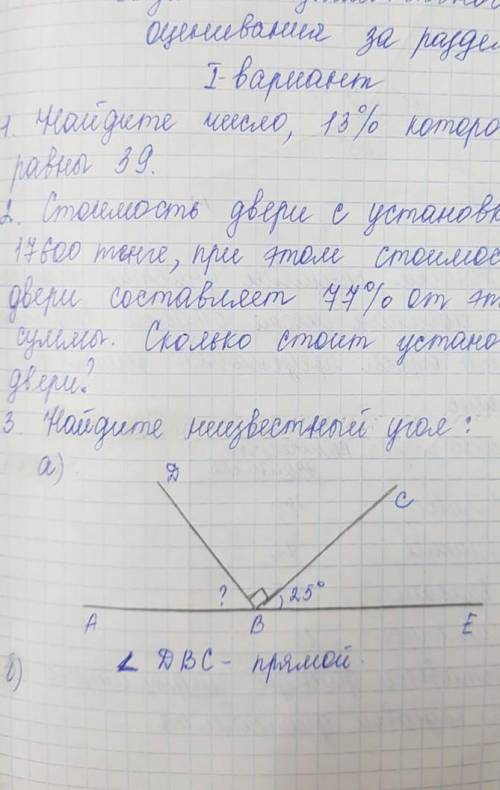 оценивания за раздел
I-вариант
1. Найдите число, 13% которо
равны 39.
2. Стоимость двери с установк
17600 тенге, при этом стоимос
двери составляет 77% от эт
суммы. Сколько стоит устано
двери?
3. Найдите неизвестный угол:
а)
D
C
? 25°
A B E
∠ DBC - прямой.
б)